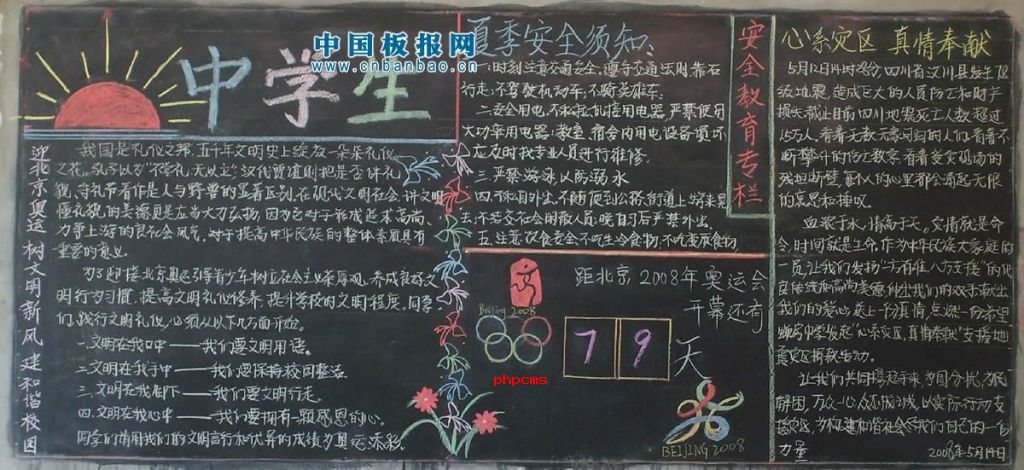 中国板报网
www.cnbanbao.cn
中学生
迎北京奥运 树文明新风 建和谐校园
我国是礼仪之邦,五千年文明史上绽放一朵朵礼仪
之花。孔子以为“不学礼,无以立”汉代贾谊则把是否讲礼
貌,守礼节看作是人与野兽的显著区别,在现代文明社会,讲文明
懂礼貌的美德更是应当大力弘扬,因为它对于形成起来高尚、
力争上游的良社会风气,对于提高中华民族的整体素质具有
重要的意义。
为了迎接北京奥运引导青少年树立社会主义荣辱观,养成良好文
明行为习惯,提高文明礼仪修养,提升学校的文明程度,同学
们,践行文明礼仪,必须从以下几方面开始。
一.文明在我口中——我们要文明用语。
二.文明在我手中——我们要保持校园整洁。
三.文明在我脚下——我们要文明行走。
四.文明在我心中——我们要拥有一颗感恩的心。
同学们请用我们的文明言行和优异的成绩为奥运添彩。
夏季安全须知:
一.时刻注意交通安全,遵守交通法则靠右
行走;不驾驶机动车,不骑英雄车.
二.安全用电,不私拉乱接用电器,严禁使用
大功率用电器;教室,宿舍内用电设备损坏
应及时找专业人员进行维修.
三.严禁游泳,以防溺水
四.不私自外出,不随便到公路,街道上游来晃
去;不与社会闲散人员;晚自习后严禁外出.
五.注意饮食安全不吃生冷食物,不吃变质食物
安全教育专栏
距北京2008年奥运会
开幕还有
79
天
Beijing 2008
phpcms
BEIJING 2008
心系灾区 真情奉献
5月12日14时28分,四川省汶川县发生7.8
级地震,造成巨大的人员伤亡和财产
损失,截止目前四川地震死亡人数超过
1.5万人,看着无数无家可归的人们,看着不
断攀升的伤亡数字,看着受灾现场的
残垣断壁,每个人的心里都会涌起无限
的哀思和
血浓于水,情高于天,灾情就是命
令,时间就是生命,作为中华民族大家庭的
一员,让我们发扬“一方有难,八方支援”的优
良传统和高尚美德,伸出我们的双手献出
我们的爱心,献上一份真情,点燃一份希望
中学发起“心系灾区,真情奉献”支援地
震灾区捐款活动.
让我们共同携起手来,为国分忧,为民
解困,万众一心,众志成城,以实际行动支
援灾区,为构建和谐社会尽我们自己的一份
力量
2008年5月14日